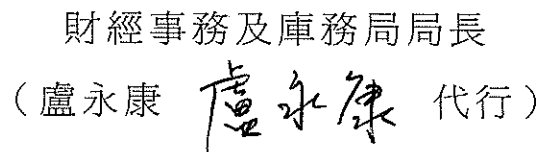 財經事務及庫務局局長
（盧永康 盧永康 代行）